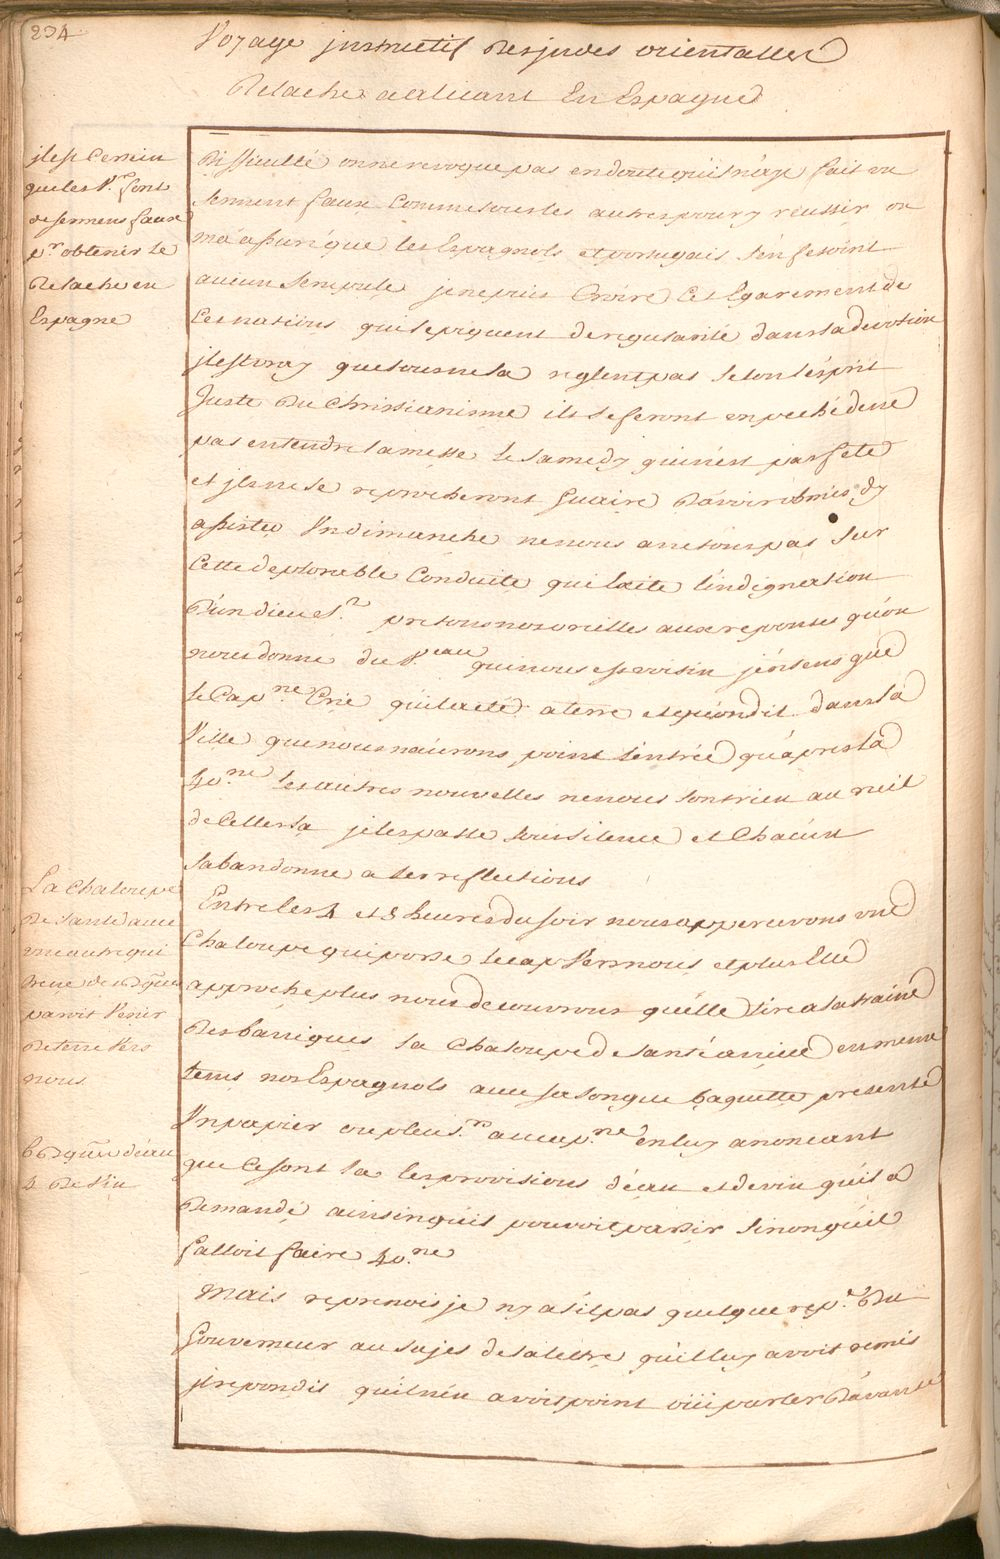 234
Voyage jnstructif Des jndes orientalles
Relache a alicant En Espagne
jl est Certain
que les V.x font
de sermens faux
p.r obtenir le
Relache en
Espagne
Difficulté on ne revoque pas en doute qu'il n'aye fait un
serment faux Comme tous les autres pour y réussir on
m'a assuré que les Espagnols et portugais s'en fesoint
aucun scrupule je ne puis Croire Cet Egarement de
Ces nations qui se piquent de regularité dans la devotion
jl est vray que tous ne la reglent pas selon l'esprit
Juste Du Christianisme ils se feront un peché de ne
pas entendre la messe le samedy qui n'est pas fete
et jls ne se reprocheront Guaire D'avoir obmis d'y
assister Un dimanche ne nous aretons pas sur
Cette deplorable Conduite qui Exite l'indignation
D'un dieu S.t pretons nos oreilles aux reponses qu'on
nous donne du V.eau qui nous est voisin j'entens que
le Cap.ne Crie qu'il a eté a terre et qu'on dit dans la
Ville que nous n'aurons point l'entrée qu'apres la
40.ne Les autres nouvelles ne nous sont rien au prix
de Celles la je les passe sous silence et Chacun
s'abandonne a ses reflections
La Chaloupe
De santé avec
une autre qui
trene des B.ques
paroit Venir
De terre Vers
nous
Entre les 4 et 5 heures du soir nous appercevons une
Chaloupe qui porte le cap Vers nous et plus Elle
approche plus nous decouvrons qu'elle tire a la traine
Des bariques la Chaloupe de santé arrive en meme
tems nos Espagnols avec sa longue baguette presente
Un papier au cap.ne en luy anoncant
6 B.ques d'eau
4 De Vin
que Ce sont la les provisions d'eau et de vin qu'il a
Demandé ainsin qu'il pouvoit partir sinon qu'il
falloit faire 40.ne
Mais reprenois je n'y a t'il pas quelque rep.e Du
Gouverneur au sujet de la lettre qu'il luy avoit remis
jl repondit qu'il n'en avoit point oüi parler D'avante